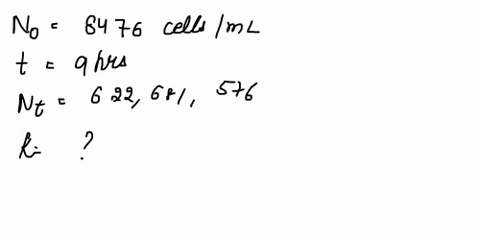 N₀ = 8476 cells /mL
t = 9 hrs
Nt = 622, 681, 576
k = ?